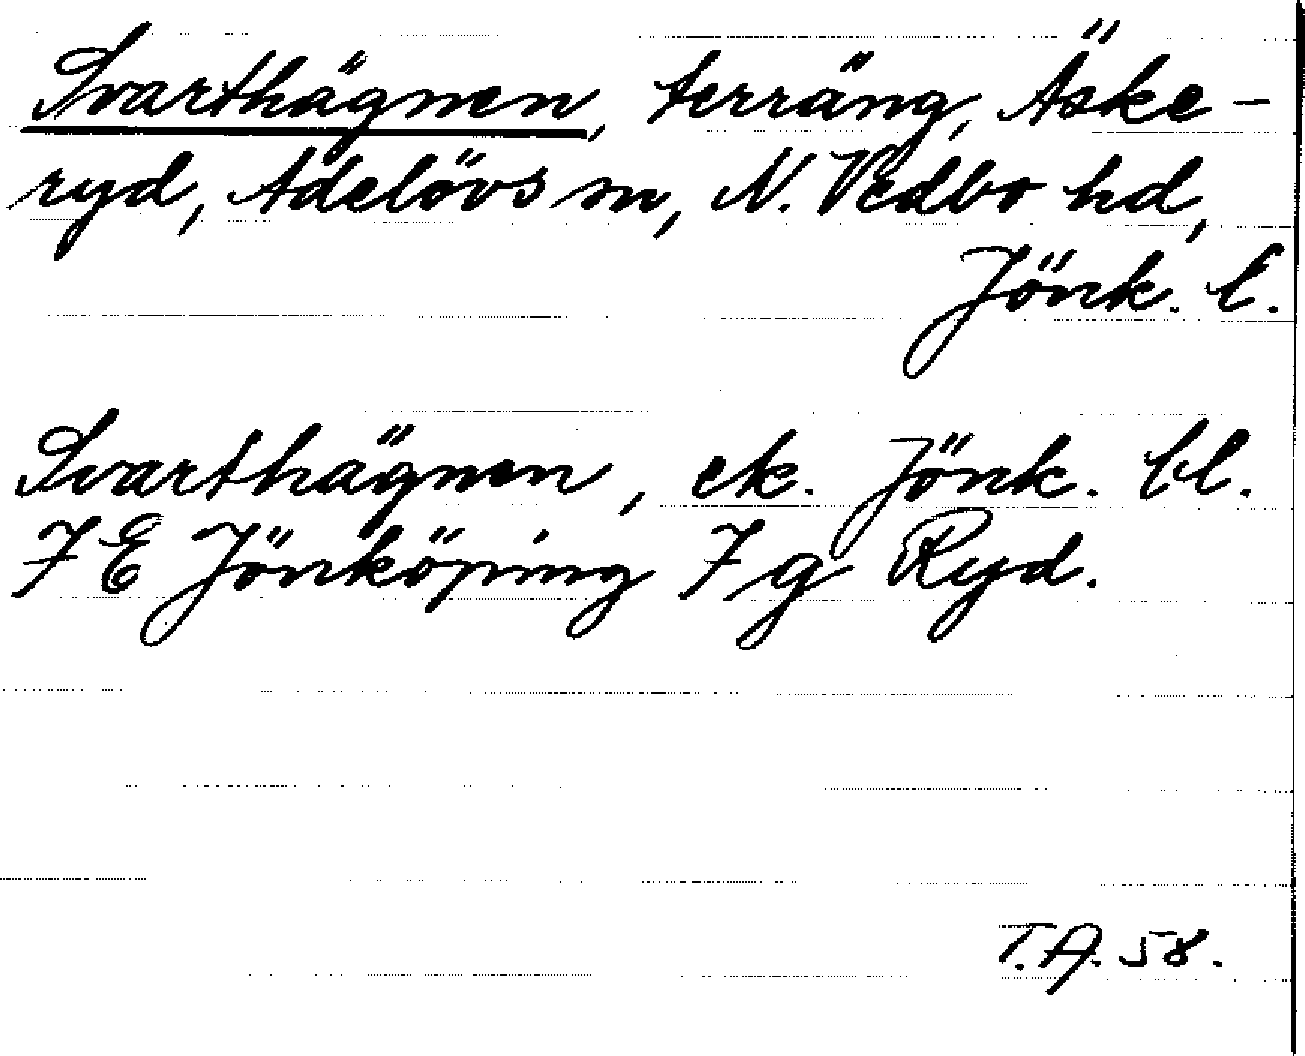 Svarthägnen, terräng, Äske-
ryd, Adelövs sn, N. Vedbo hd,
Jönk. l.
Svarthägnen, ek. Jönk. bl.
7 E Jönköping 7 g Ryd.
T.A. 58.